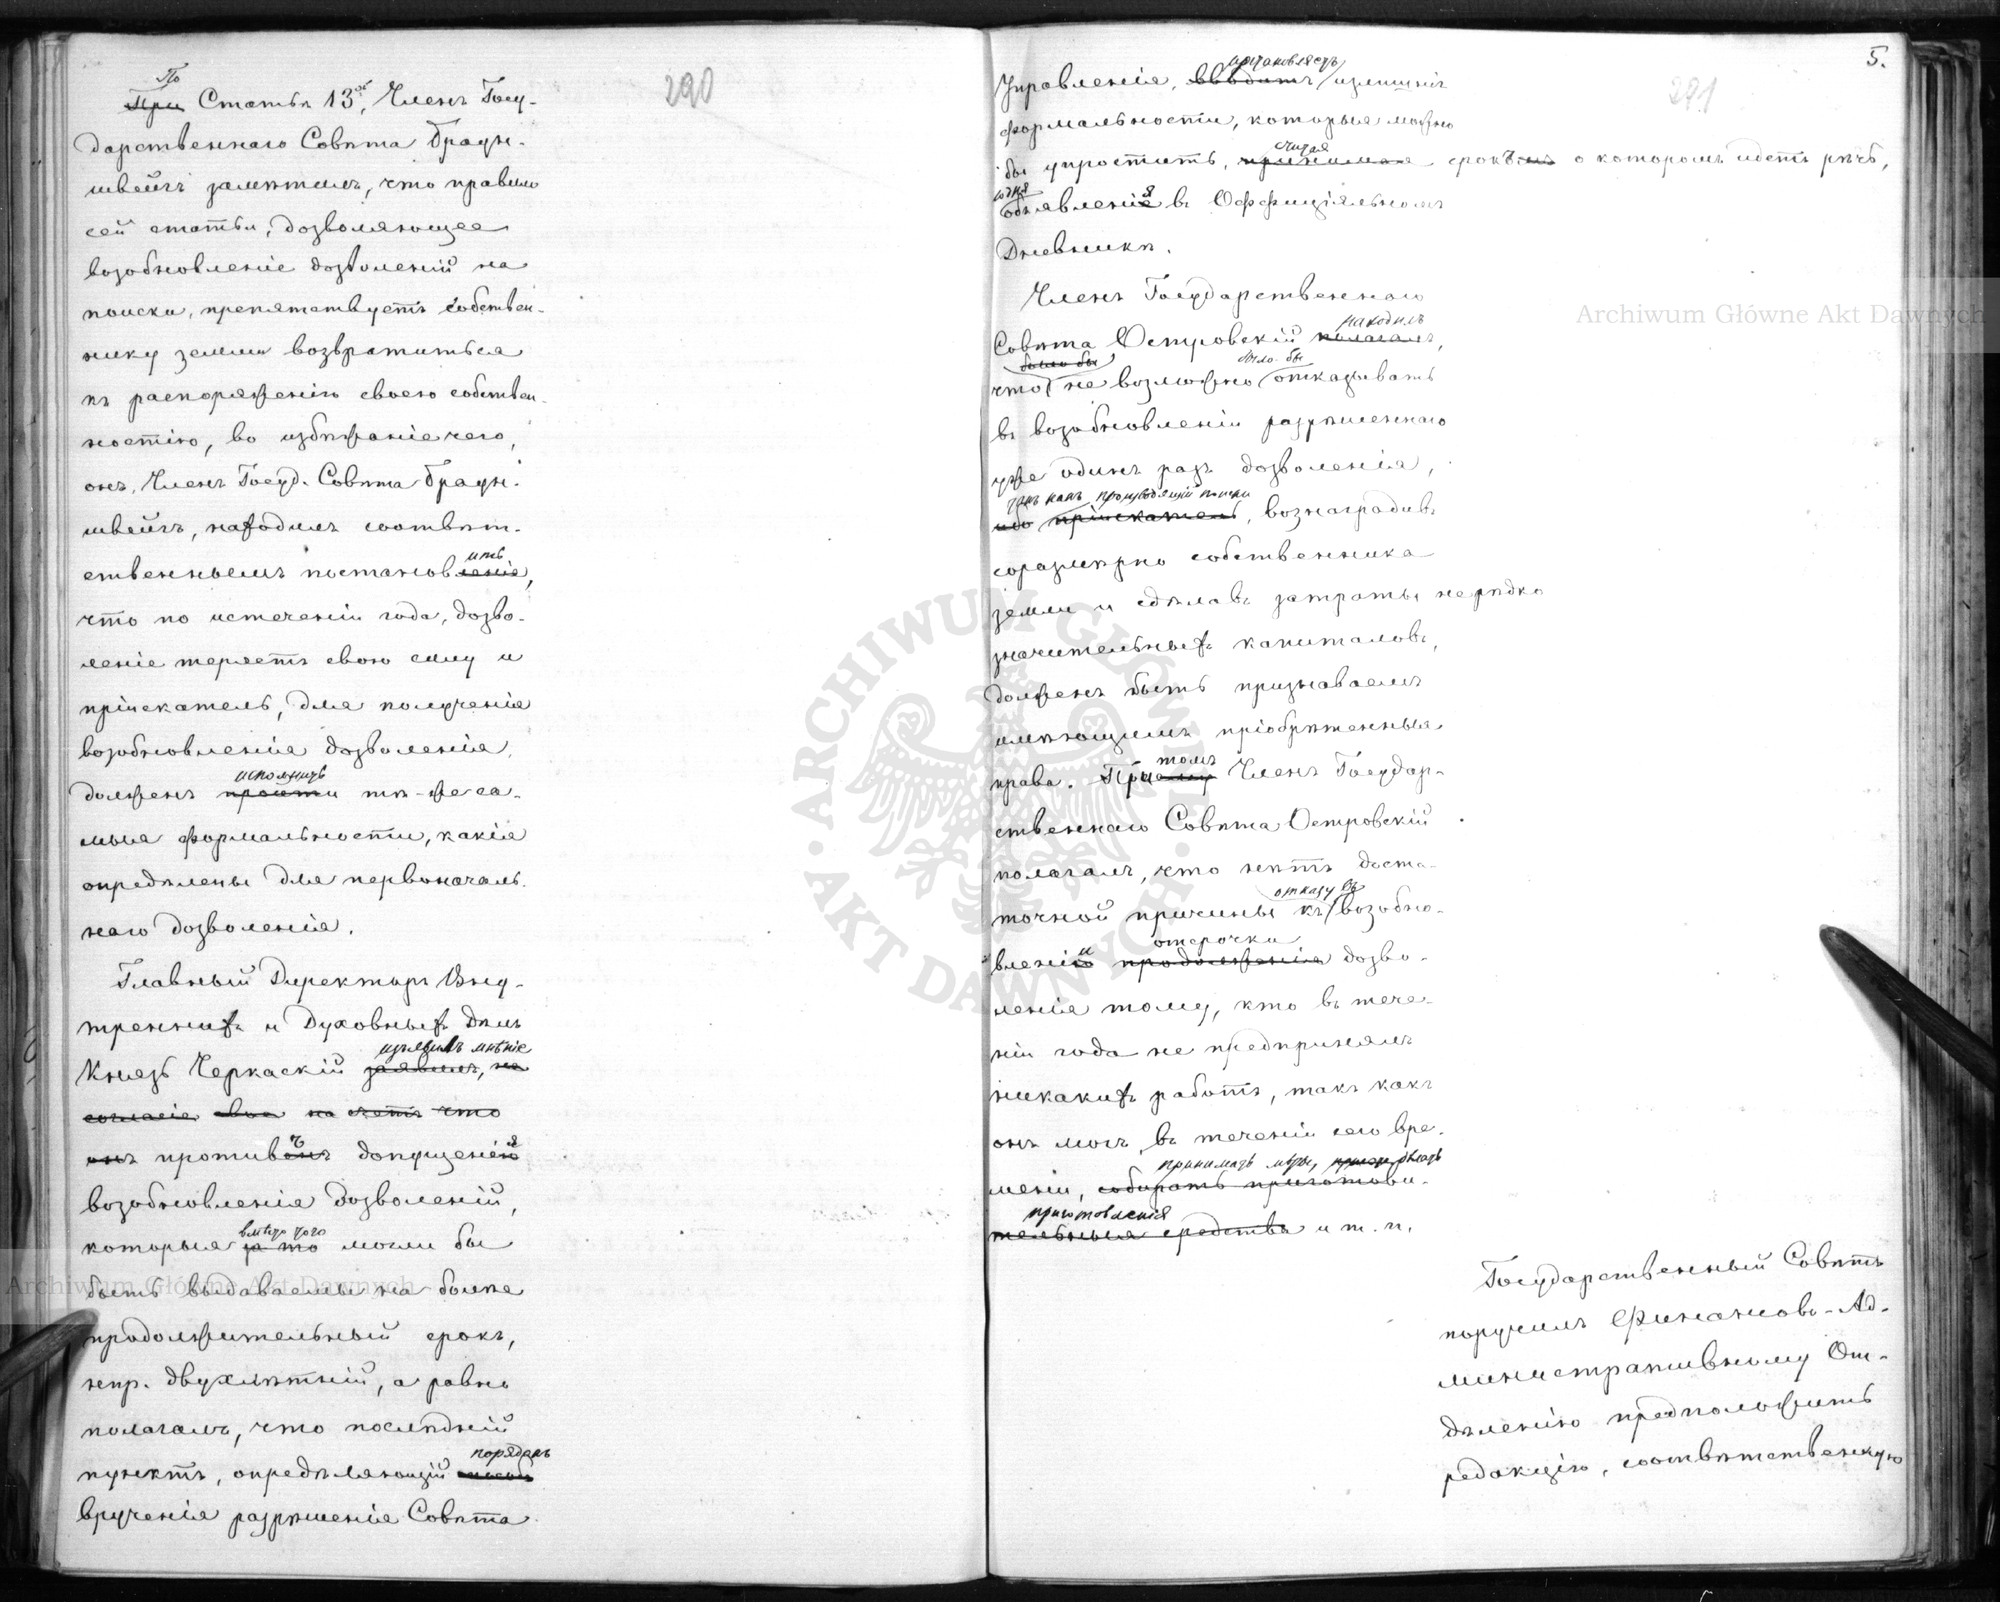 290
По
При Статьѣ 13ой, Членъ Госу-
дарственнаго Совѣта Браун-
швейгъ замѣтилъ, что правило
сей статьи, дозволяющее
возобновленіе дозволеній на
поиски, препятствуетъ собствен-
нику земли возвратиться
къ распоряженію своею собствен-
ностію, во избѣжаніе чего,
онъ, Членъ Госуд. Совѣта Браун-
швейгъ, находилъ соотвѣт-
ить
ственнымъ постановленіе,
что по истеченіи года, дозво-
леніе теряетъ свою силу и
пріискатель, для полученія
возобновленія дозволенія,
исполнить
долженъ пройти тѣ-же са-
мыя формальности, какія
опредѣлены для первоначаль-
наго дозволенія.
Главный Директоръ Вну-
треннихъ и Духовныхъ Дѣлъ
изъявилъ мнѣніе
Князь Черкаскій заявилъ, не
согласіе свое на счетъ что
ъ я
онъ противъ допущенію
возобновленія дозволеній,
вмѣсто чего
которыя за то могли бы
быть выдаваемы на болѣе
продолжительный срокъ,
напр. двухлѣтній, а равно
полагалъ, что послѣдній
порядокъ
пунктъ, опредѣляющій способъ
врученія разрѣшенія Совѣта
5.
291
установляетъ
Управленія, вводитъ излишнія
формальности, которыя можно
считая
бы упростить, принимая срокъ о которомъ идетъ рѣчь,
со дня
объявленія въ Оффиціяльномъ
Дневникѣ.
Членъ Государственнаго
находилъ
Совѣта Островскій полагалъ,
было бы было бы
что не возможно отказывать
въ возобновленіи разрѣшеннаго
уже одинъ разъ дозволенія,
такъ какъ производящій поиски
ибо пріискатель, вознаградивъ
соразмѣрно собственника
земли и сдѣлавъ затраты нерѣдко
значительныхъ капиталовъ,
долженъ быть признаваемъ
имѣющимъ пріобрѣтенныя
томъ
права. При Членъ Государ-
ственнаго Совѣта Островскій
полагалъ, что нѣтъ доста-
отказу въ
точной причины къ возобно-
и отсрочки
вленію продолженія дозво-
ленія тому, кто въ тече-
ніи года не предпринялъ
никакихъ работъ, такъ какъ
онъ могъ въ теченіи сего вре-
принимать мѣры, дѣлать
мени, собирать приготови-
приготовленія
тельныя средства и т. п.
Государственный Совѣтъ
поручилъ Финансово-Ад-
министративному От-
дѣленію предположить
редакцію, соотвѣтственную
Archiwum Główne Akt Dawnych
Archiwum Główne Akt Dawnych
ARCHIWUM GŁÓWNE
AKT DAWNYCH